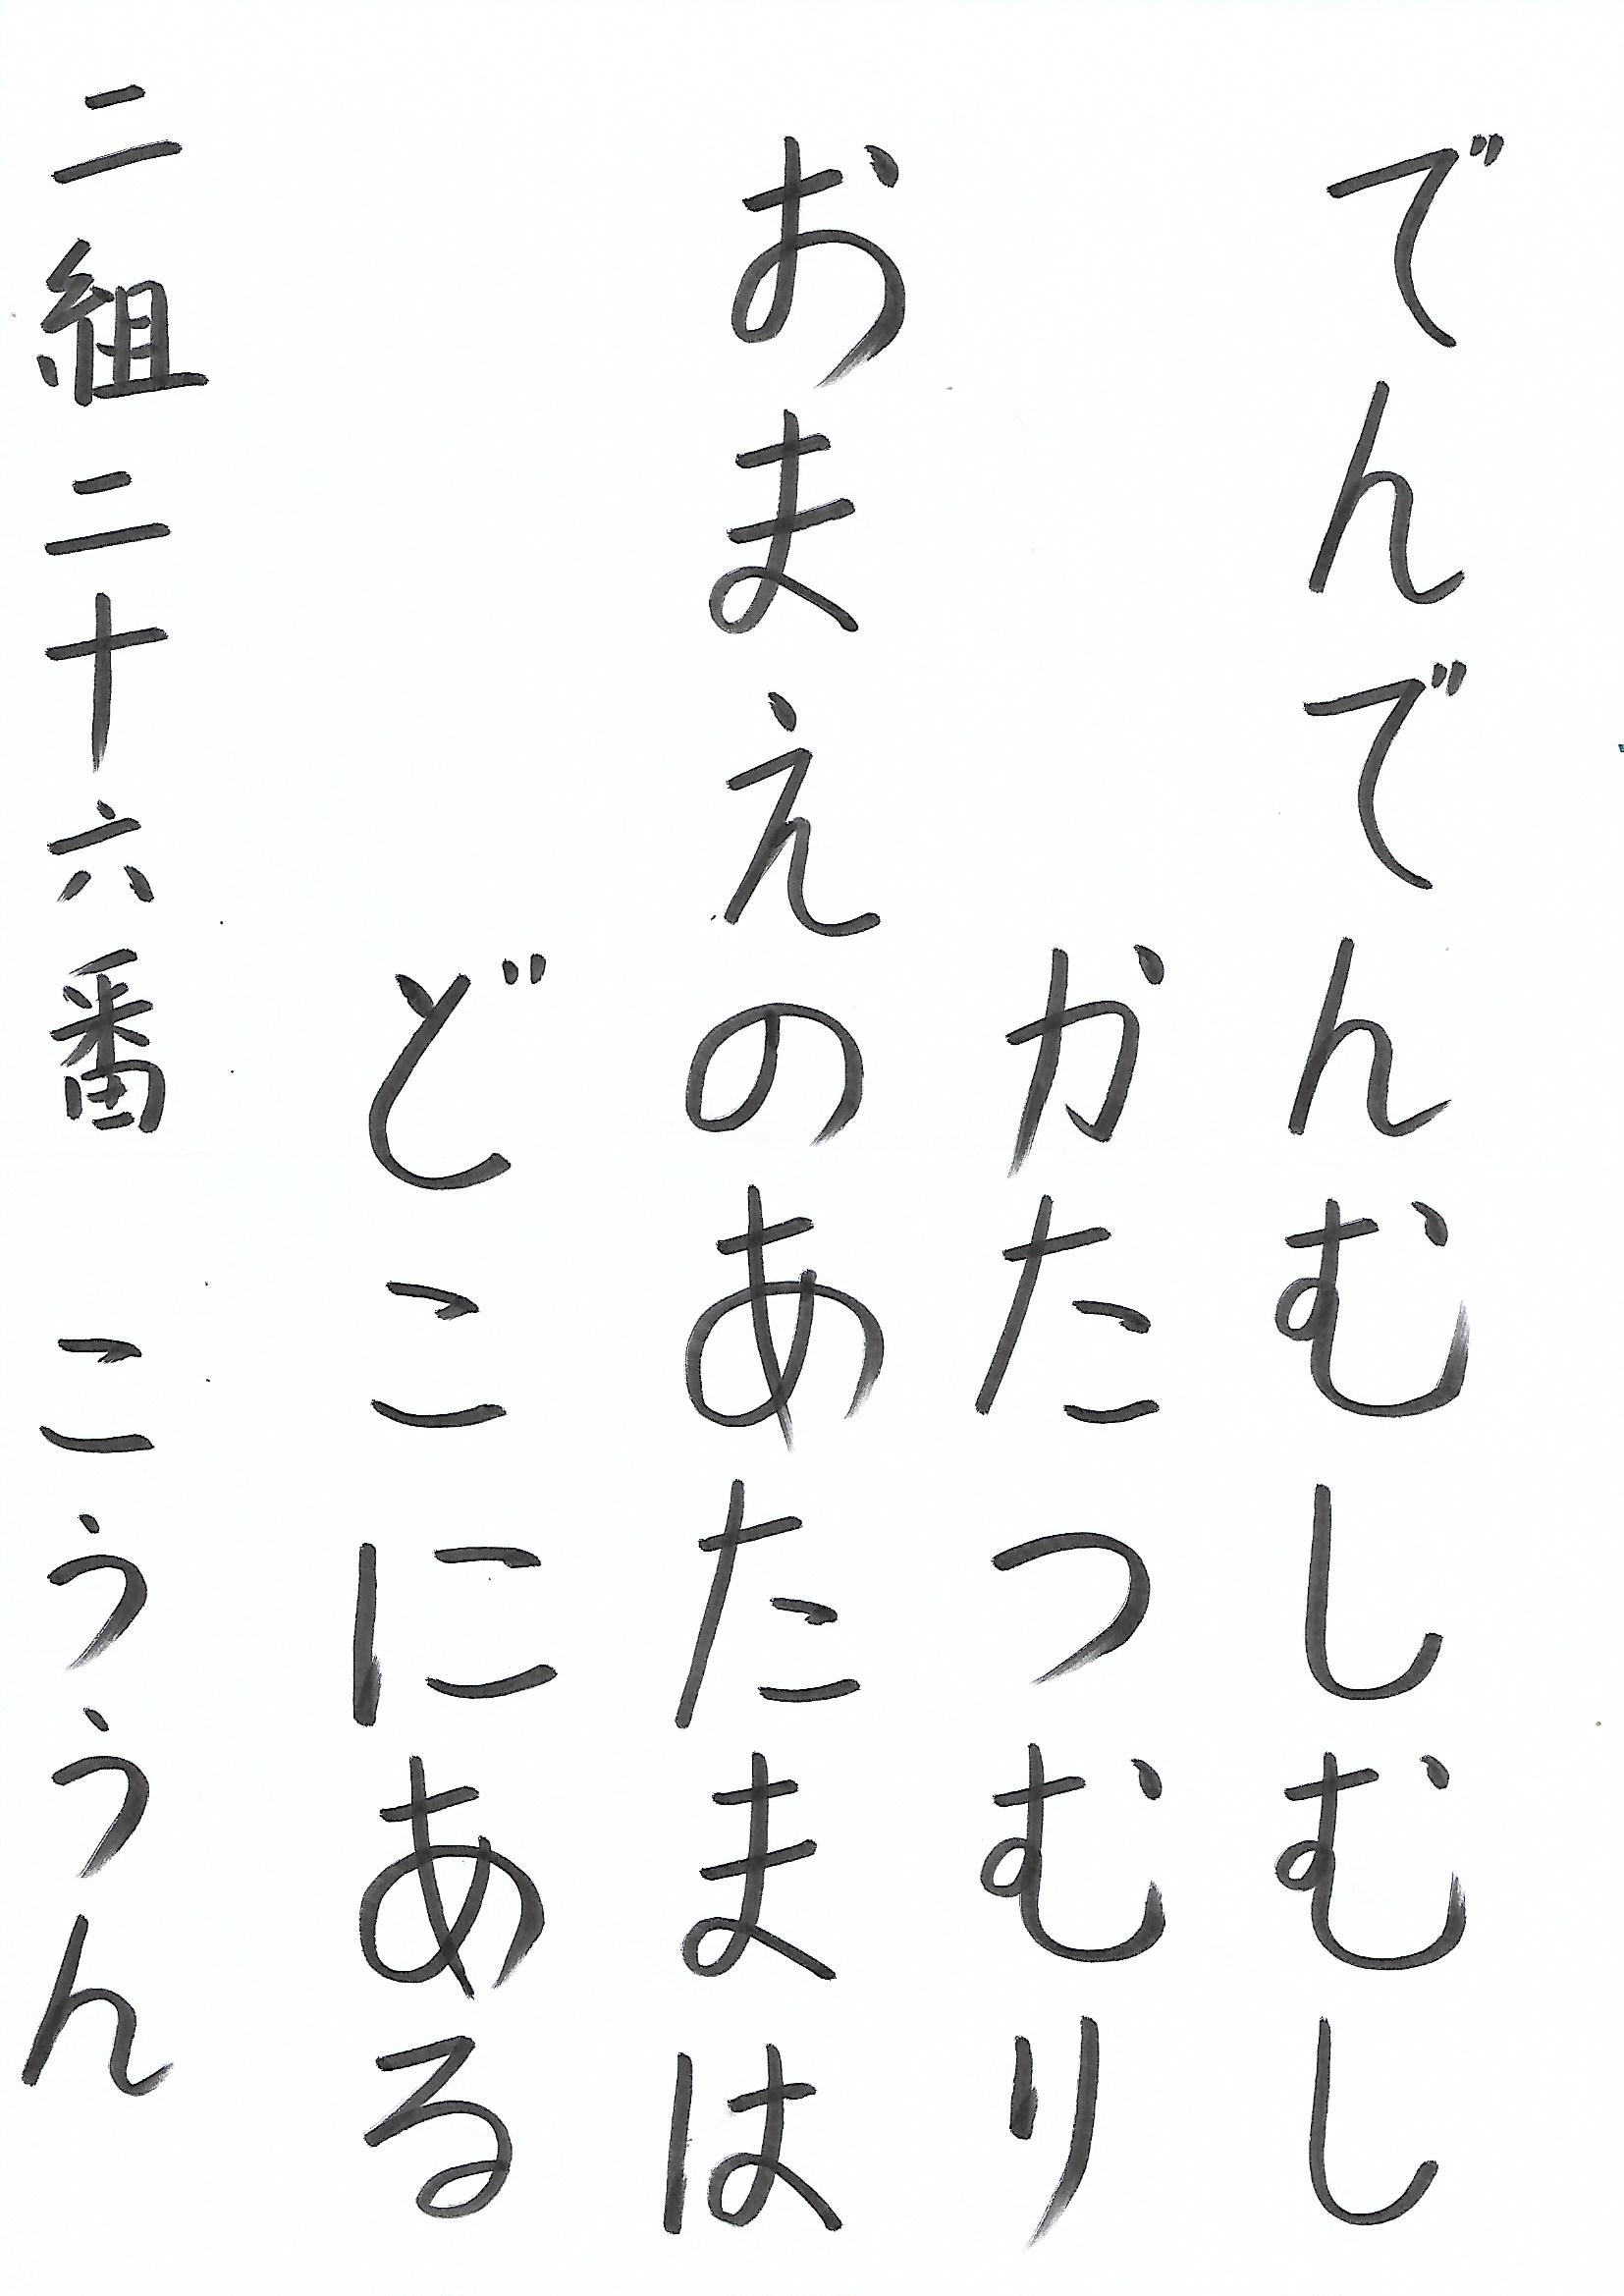 でんでんむしむし
かたつむり
おまえのあたまは
どこにある
二組二十六番 こううん